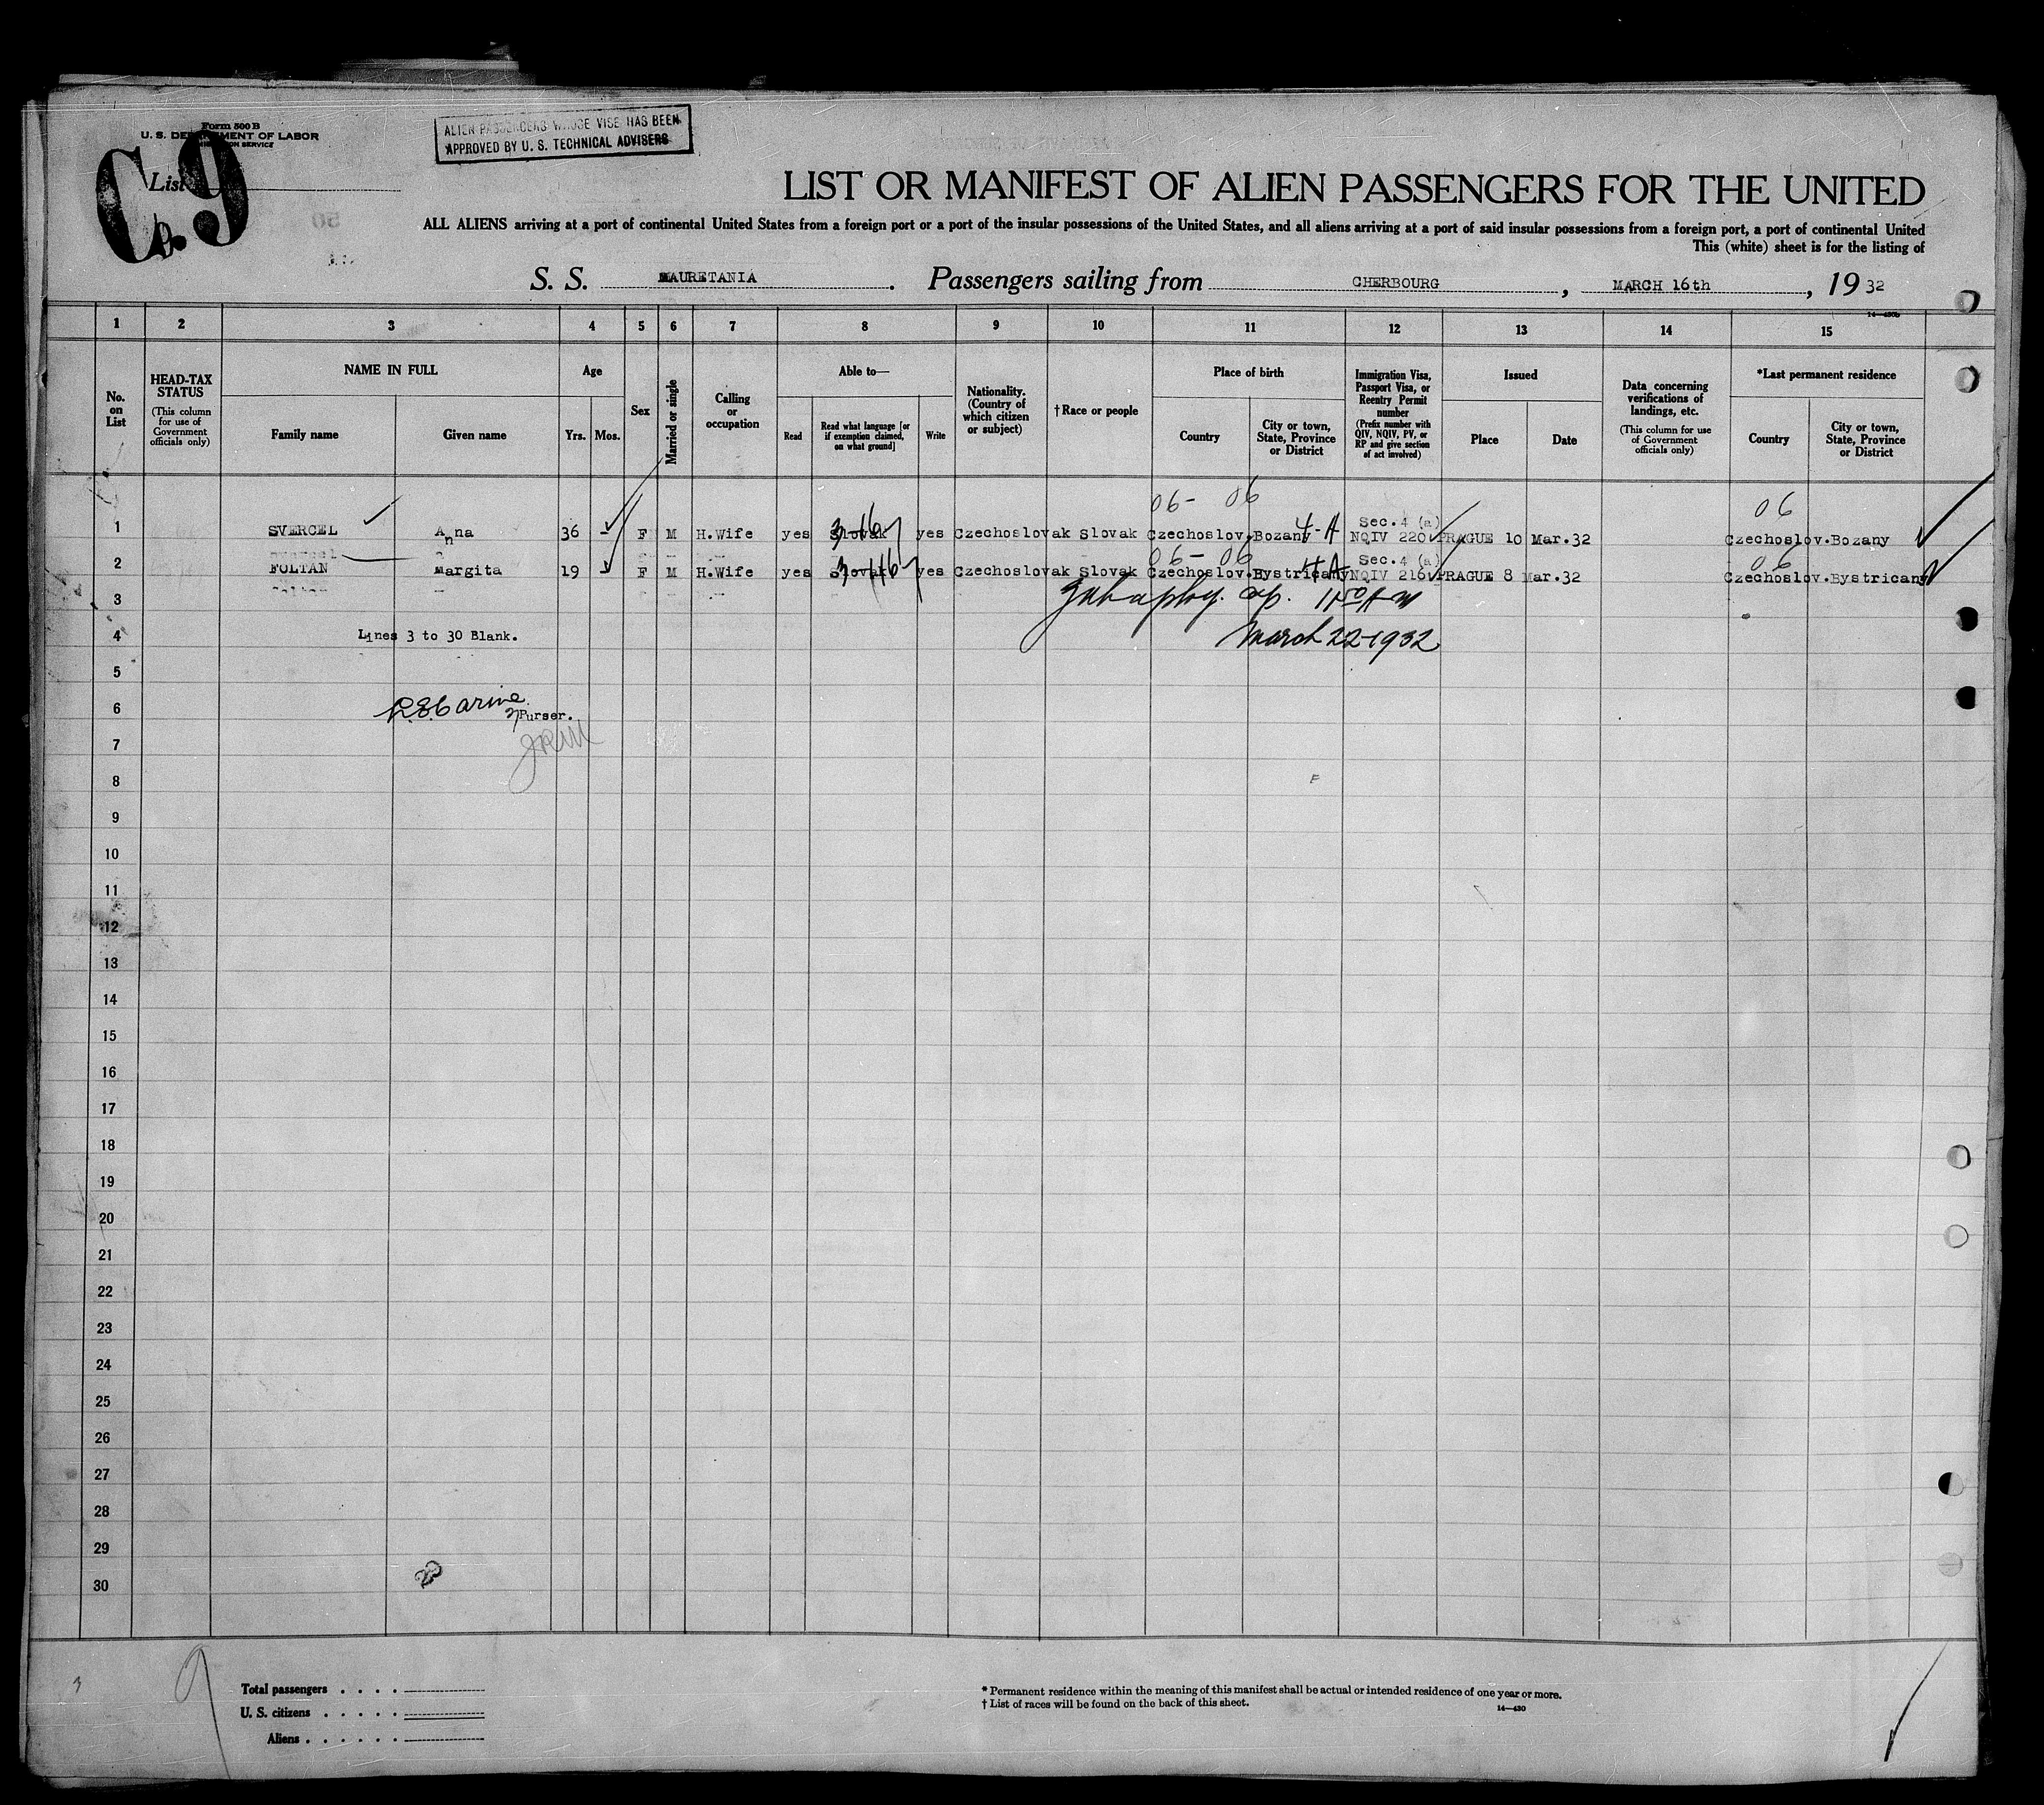 Form 500 B
U. S. DEPARTMENT OF LABOR
IMMIGRATION SERVICE
List
C.9
ALIEN PASSENGERS WHOSE VISE HAS BEEN
APPROVED BY U. S. TECHNICAL ADVISERS
LIST OR MANIFEST OF ALIEN PASSENGERS FOR THE UNITED
ALL ALIENS arriving at a port of continental United States from a foreign port or a port of the insular possessions of the United States, and all aliens arriving at a port of said insular possessions from a foreign port, a port of continental United
This (white) sheet is for the listing of
S. S. MAURETANIA. Passengers sailing from CHERBOURG, MARCH 16th, 1932
14—430b
1 2 3 4 5 6 7 8 9 10 11 12 13 14 15
No. on List
HEAD-TAX STATUS
(This column for use of Government officials only)
NAME IN FULL
Family name
Given name
Age
Yrs. Mos.
Sex
Married or single
Calling or occupation
Able to—
Read
Read what language [or if exemption claimed, on what ground]
Write
Nationality. (Country of which citizen or subject)
†Race or people
Place of birth
Country
City or town, State, Province or District
Immigration Visa, Passport Visa, or Reentry Permit number
(Prefix number with QIV, NQIV, PV, or RP and give section of act involved)
Issued
Place
Date
Data concerning verifications of landings, etc.
(This column for use of Government officials only)
*Last permanent residence
Country
City or town, State, Province or District
06- 06 06
Sec. 4 (a)
1 SVERCEL Anna 36 - F M H.Wife yes Slovak yes Czechoslovak Slovak Czechoslov. Bozany 4-A NQIV 220 PRAGUE 10 Mar.32 Czechoslov. Bozany
06- 06 06
Sec. 4 (a)
2 FOLTAN Margita 19 F M H.Wife yes Slovak yes Czechoslovak Slovak Czechoslov. Bystricany 4A NQIV 216 PRAGUE 8 Mar.32 Czechoslov. Bystricany
3
4 Lines 3 to 30 Blank. March 22-1932
5
6 Purser.
7
8
9
10
11
12
13
14
15
16
17
18
19
20
21
22
23
24
25
26
27
28
29
30
Total passengers . . . .
U. S. citizens . . . . .
Aliens . . . . . .
* Permanent residence within the meaning of this manifest shall be actual or intended residence of one year or more.
† List of races will be found on the back of this sheet.
14—430